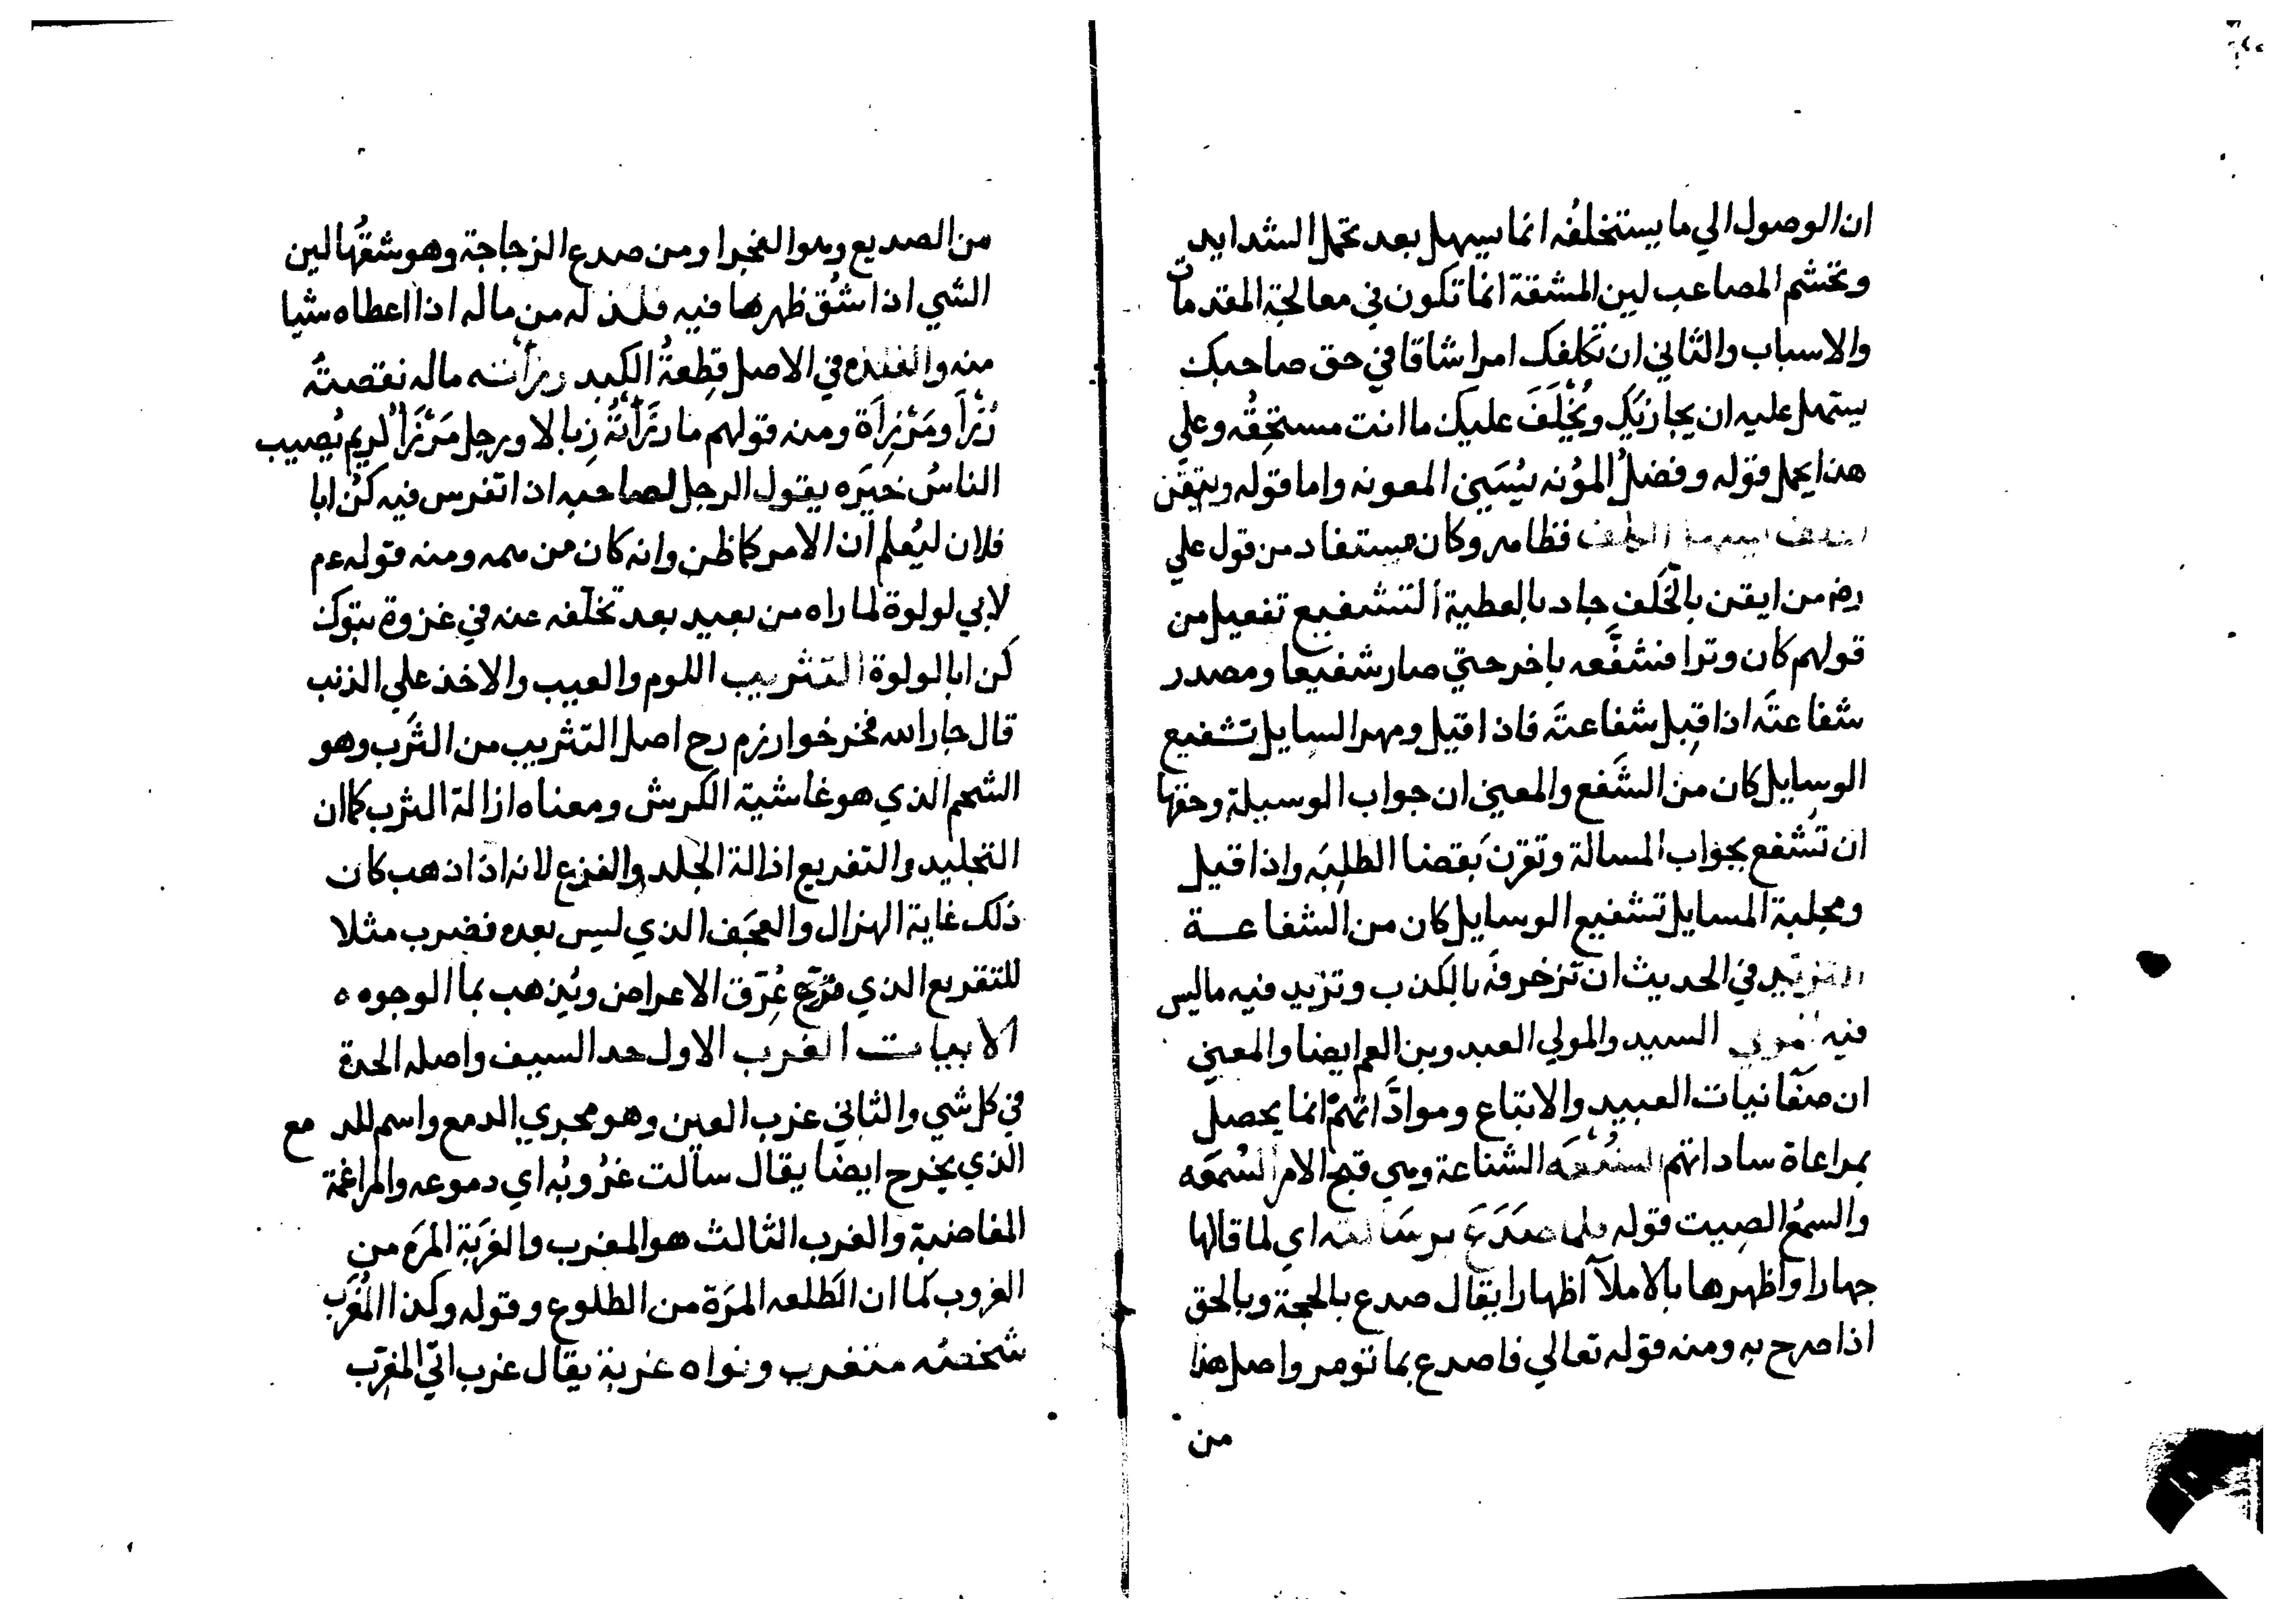 ان الوصول الي ما يستخلفُه انما يسهل بعد تحمل الشدايد
وتجشم المصاعب لين المشقة انما تكون في معالجة المقدمات
والاسباب والثاني ان تكلفك امرا شاقا في حق صاحبك
يستهل عليه ان يجازيك ويُخْلَفَ عليك ما انت مستحِقُه وعلي
هذا يحمل قوله وفضلُ المؤنه يُسَيني المعونه واما قوله وتيقن
فظاهر وكان مستفاد من قول علي
رضر من ايقن بالخَلف جاد بالعطية التشفيع تفعيل من
قولهم كان وترا فشفَّعه باخر حتي صار شفيعا ومصدر
شفاعتَه اذا قبِل شفاعتَه فاذا قيل ومهر السايل تشفيع
الوسايل كان من الشَفع والمعني ان جواب الوسيلة وحقها
ان تُشفع بجواب المسالة وتقرن بقضا الطلِبَه واذا قيل
ومجلبة المسايل تشفيع الوسايل كان من الشفاعة
في الحديث ان تزخرفَه بالكذب وتزيد فيه ما ليس
فيه السيد والمولي العبد وبن العم ايضا والمعني
ان صفآنيات العبيد والاتباع وموادَّاتهم انما يحصل
بمراعاة ساداتهم الشُنْعَه الشناعة وهي قبح الامر السُمعَه
والسمعُ الصِيت قوله فلما صَدَعَ برسَالته اي لما قالها
جهارا واظهرها بالاملآ اظهارا يقال صدع بالحجة وبالحق
اذا صرح به ومنه قوله تعالي فاصدع بما تومر واصل هذا
من
من الصديع وهو الفجر او من صدع الزجاجة وهو شقُها لين
الشي اذا شُق ظهر ما فيه فلذ له من ماله اذا اعطاه شيا
منه والفلذه في الاصل قِطعةُ الكبد رزأته ماله نقصتُه
رُزْأً ومَرْزِأَة ومنه قولهم ما رزَأْتُهُ زِبالا ورجل مَرْزَأ كريم يُصيب
الناسُ خيرَه يقول الرجل لصاحبه اذا تفرس فيه كُن ابا
فلان ليُعلم ان الامر كما ظن وانه كان من ومنه قوله عم
لابي لولوة لما راه من بعيد بعد تخلفه عنه في غزوة تبوك
كن ابا لولوة التثريب اللوم والعيب والاخذ علي الذنب
قال جار الله فخر خوارزم رح اصل التثريب من الثَرب وهو
الشحم الذي هو غاشية الكرش ومعناه ازالة الثرب كما ان
التجليد والتقريع ازالة الجلد والقزع لانه اذا ذهب كان
ذلك غاية الهزال والعَجَف الذي ليس بعده فضرب مثلا
للتقريع الذي يمزق الاعراض ويُذهب بما الوجوه ه
الابيات الغرب الاول حد السيف واصله الحدة
في كل شي والثاني غرب العين وهو مجري الدمع واسم للدمع
الذي يخرج ايضا يقال سآلت غرُوبُه اي دموعه والمراغمة
المغاضبة والغرب الثالث هو المغرب والغَربَة المرَه من
الغروب كما ان الطلعه المرَة من الطلوع وقوله وكذا المُغَرب
شخصُه متغرب ونواه غربة يقال غرب اتي المغرب